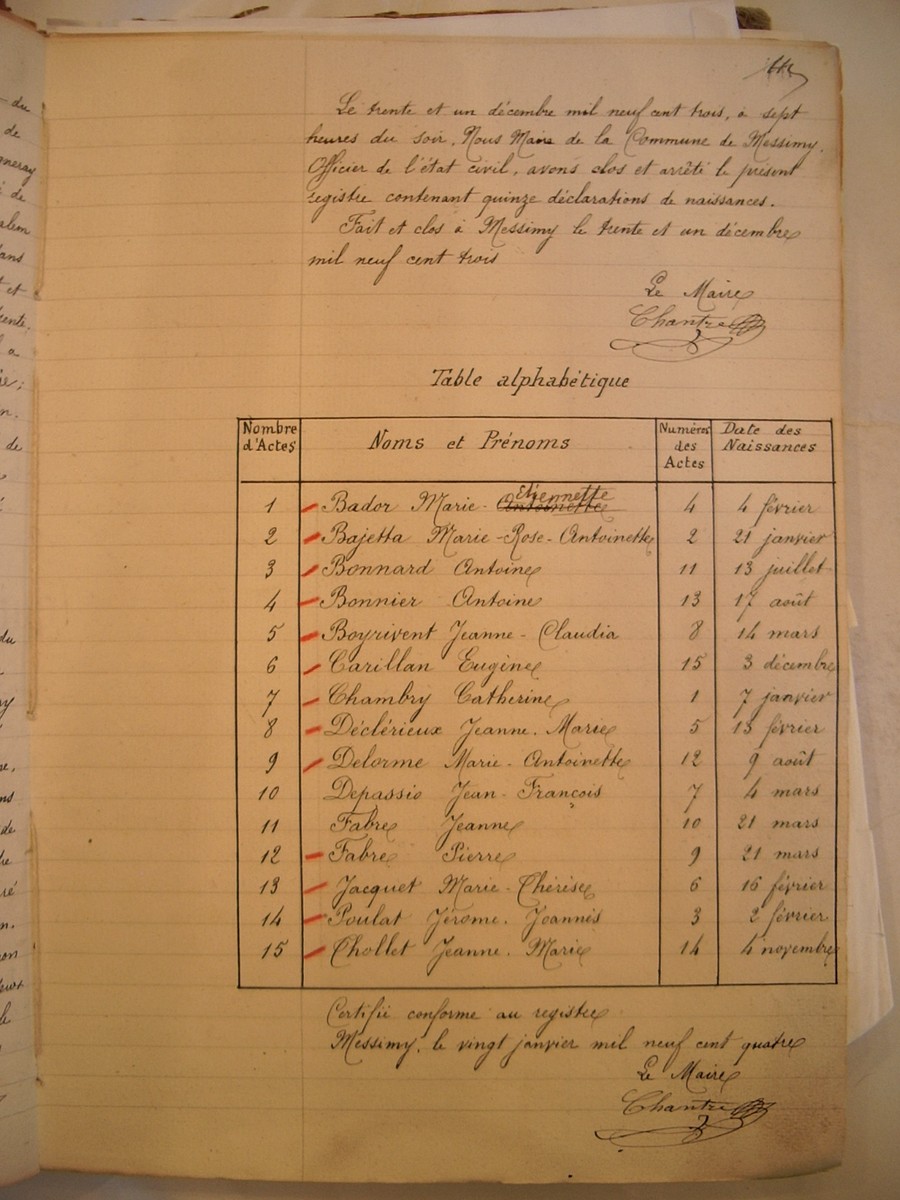 Le trente et un décembre mil neuf cent trois, à sept
heures du soir, Nous Maire de la Commune de Messimy,
Officier de l'état civil, avons clos et arrêté le présent
registre contenant quinze déclarations de naissances.
Fait et clos à Messimy le trente et un décembre
mil neuf cent trois
Le Maire
Chantre
Table alphabétique
Nombre d'Actes Noms et Prénoms Numéros des Actes Date des Naissances
1 Bador Marie-Antoinette Etiennette 4 4 février
2 Bajetta Marie-Rose-Antoinette 2 21 janvier
3 Bonnard Antoine 11 13 juillet
4 Bonnier Antoine 13 17 août
5 Boyrivent Jeanne-Claudia 8 14 mars
6 Carillan Eugène 15 3 décembre
7 Chambry Catherine 1 7 janvier
8 Déclérieux Jeanne-Marie 5 13 février
9 Delorme Marie-Antoinette 12 9 août
10 Depassio Jean-François 7 4 mars
11 Fabre Jeanne 10 21 mars
12 Fabre Pierre 9 21 mars
13 Jacquet Marie-Thérèse 6 16 février
14 Poulat Jérome-Joannès 3 2 février
15 Chollet Jeanne-Marie 14 4 novembre
Certifié conforme au registre
Messimy, le vingt janvier mil neuf cent quatre
Le Maire
Chantre